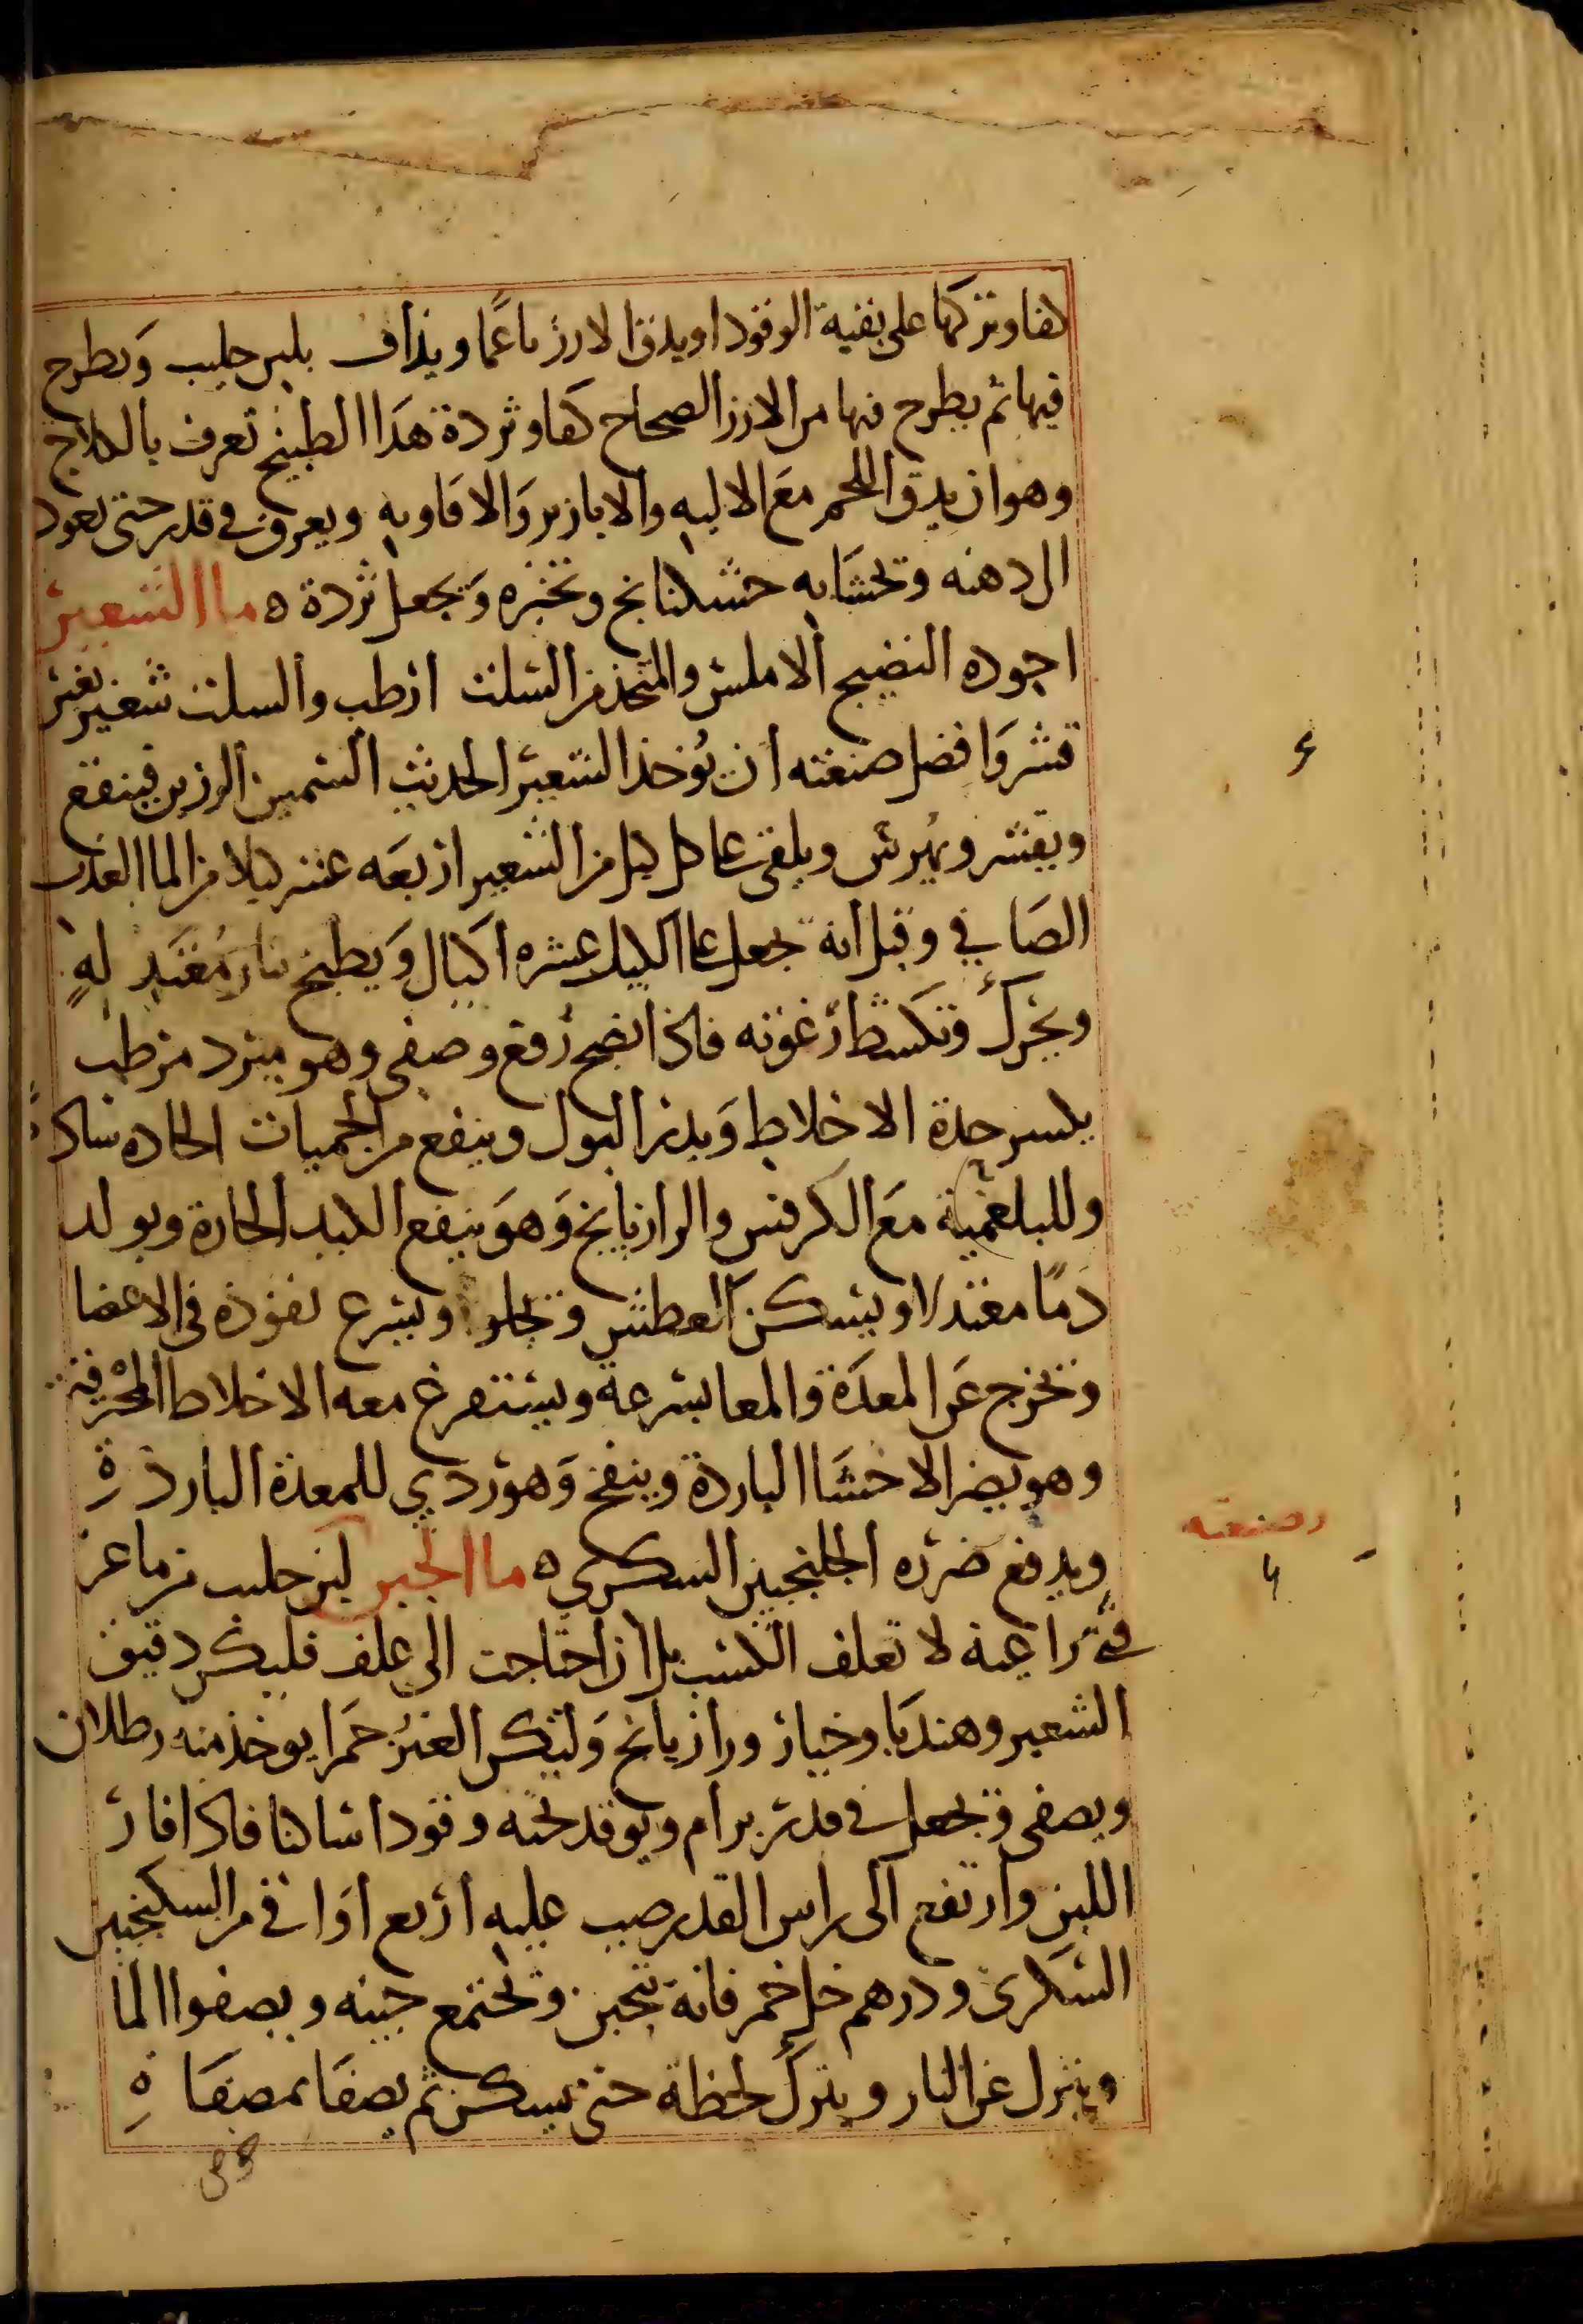 كفا وتتركها على بقية الوقود او يدق الارز ناعمًا ويذاف بلبن حليب وَيطرح
فيها ثم يطرح فيها من الارز الصحاح كفا وثردة هذا الطبيخ تعرف بالكلاج
وهو ان يدق اللحم مَع الاليه والابازير وَالافاويه ويعرق في قدر حتى يعود
الى دهنه وتحشَا به خشكنانج وتخبزه وَتجعل ثردة ه ما الشعير
اجوده النضيج الاملس والمتخذ من السلت ارطب والسلت شعير بغير
قشر وَافضل صنعته ان يُوخذ الشعير الحديث السمين الرزين فينقع
ويقشر ويُهرس ويلقى على كل كيل من الشعير اربعَه عشر كيلا من الما العذب
الصَافي وقيل انه يجعل على الكيل عشره اكيال وَيطبخ بنار مُعتَدِلهٍ
ويحرك وتكشط رغوته فاذا نضج رُفع وصفي وهو مبرد مرطب
يكسر حدة الاخلاط وَيدر البول وينفع من الحميات الحاده ساذجًا
وللبلغمية مَع الكرفس والرازيانج وَهوَ ينفع الكبد الحارة ويولد
دَمًا معتدلا ويسكن العطش ويجلو ويسرع نفوذه في الاعضا
ويخرج عَن المعدَة والمعا بسرعة ويستفرغ معه الاخلاط المحْرقة
وهو يضر الاحشَا الباردة وينفخ وَهو ردي للمعدة الباردةِ
ويدفع ضرره الجلنجبين السكري ه ما الجبن لبن حليب من ماعز
فتية راعية لا تعلف الكسب بل ان احتاجت الى علف فليكن دقيق
الشعير وهندبَا وخيار ورازيانج وَلتكن العنز حمَرا يوخذ منه رطلان
ويصفى وَيجعل في قدر برام ويوقد تحته وقودا ساكنا فاذا فار
اللبن وارتفع الى راس القدر صب عليه اربع اوَاقي من السكنجبين
السكرى ودرهم خل خمر فانه يتجبن وتجتمع جبنه ويصفوا الما
وينزل عن النار ويترك لحظة حتى يسكن ثم يصفَا بمصفَاةِ
وصنعته